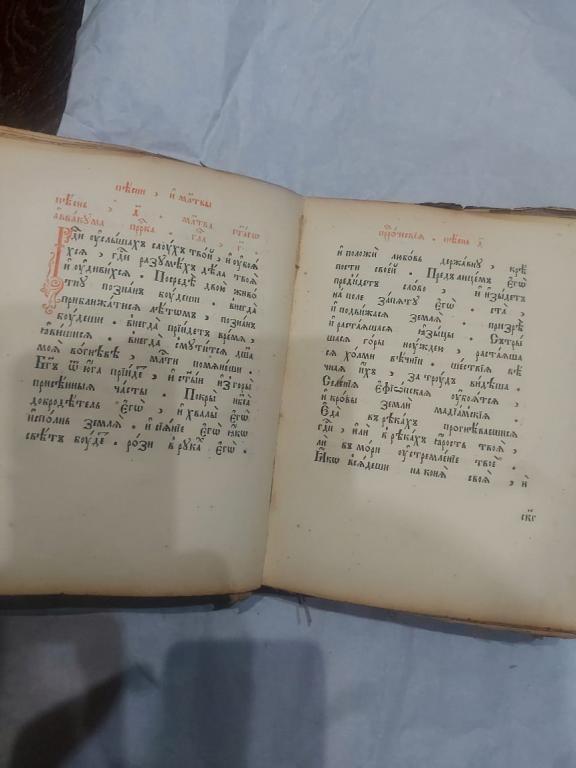 пѣсни , и҆ мл҃твы
пѣснь . д҃ . мл҃тва ст҃агѡ
а҆ввакꙋма прⷪ҇рка . гла́ , г҃ .
Гд҇и ᲂу҆слы́шахъ слꙋ́хъ тво́й , и҆ ᲂу҆боѧ́
хсѧ , гд҇и разꙋмѣ́хъ дѣла̀ твоѧ̀
и҆ ᲂу҆диви́хсѧ . Посредѣ̀ двою̀ живо́
тнꙋ позна́нъ бꙋ́деши . внегда̀
приближа́тисѧ лѣ́тѡмъ , позна́нъ
бꙋ́деши . внегда̀ прїи́детъ вре́мѧ ,
ꙗ҆ви́шисѧ . внегда̀ смꙋти́тсѧ дш҃а
моѧ̀ вогнѣ́вѣ , мл҇ти помѧне́ши .
Бг҃ъ ѿ ю҆́га прїи́детъ , и҆ ст҃ы́и и҆зго́ры
присѣ́нныѧ ча́сты . Покры̀ нб҃са̀
добродѣ́тель є҆гѡ̀ , и҆ хвалы̀ є҆гѡ̀
и҆спо́лнь землѧ̀ . и҆ сїѧ́нїе є҆гѡ̀ ꙗ҆́кѡ
свѣ́тъ бꙋ́детъ . ро́зи в рꙋка̀ є҆гѡ̀ .
прⷪ҇ро́ческїѧ . пѣснь д҃
и҆ положѝ любо́вь держа́внꙋ , крѣ́
пости свое́й . Пред̾лице́мъ є҆гѡ̀
преди́детъ сло́во , и҆ и҆зы́детъ
на по́ле запѧ́тꙋ є҆гѡ̀ . ста̀ ,
и҆ подви́жасѧ землѧ̀ . призрѣ̀
и҆ раста́ѧшасѧ ꙗ҆зы́цы . Сътры́
шасѧ го́ры нꙋ́ждею , раста́ѧша
сѧ хо́лми вѣ́чнїи . ше́ствїѧ вѣ́
чнаѧ и҆́хъ , за трꙋ́дъ ви́дѣша .
Селе́нїѧ Е҆фїо́пскаѧ ᲂу҆боѧ́тсѧ ,
и҆ кро́вы землѝ мадїа́мскїѧ .
Е҆да̀ въ рѣка́хъ прогнѣ́ваешисѧ
гд҇и , и҆лѝ в рѣка́хъ ꙗ҆́рость твоѧ̀ ,
лѝ въ мо́ри ᲂу҆стремле́нїе твоѐ .
Ꙗ҆́кѡ всѧ́деши на ко́нѧ своѧ̀ , и҆